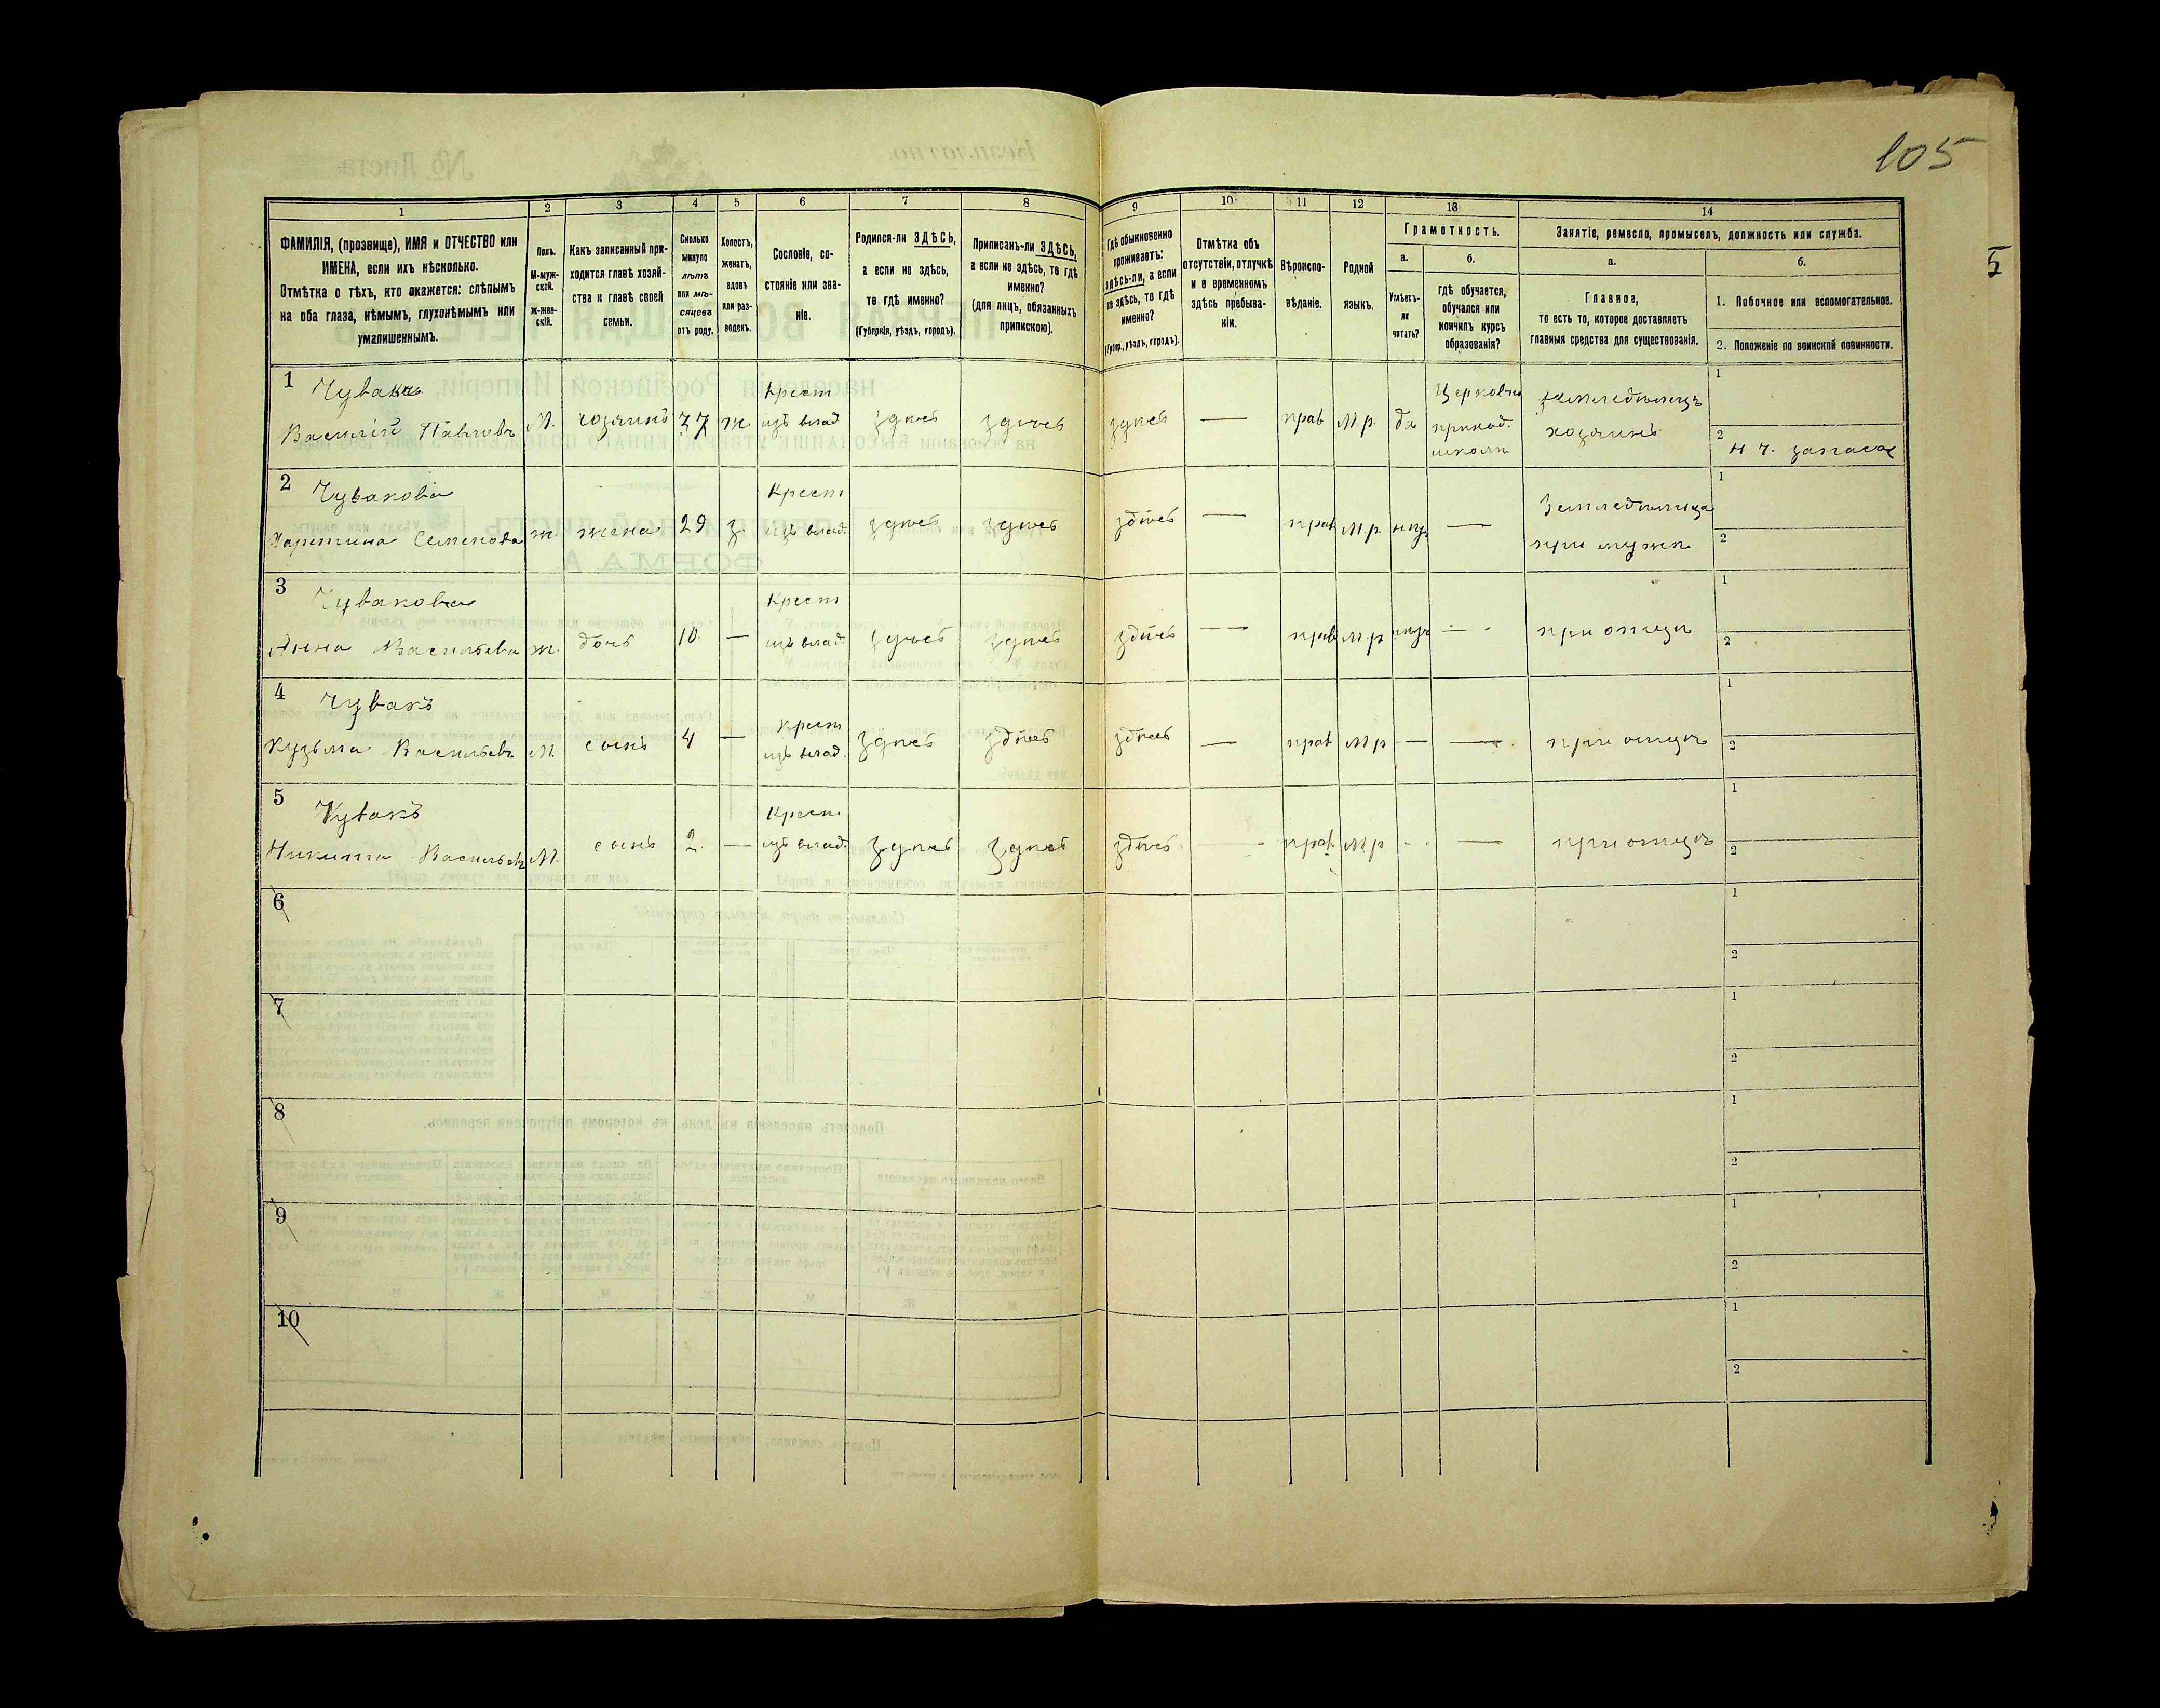 105
5
1 2 3 4 5 6 7 8 9 10 11 12 13 14
ФАМИЛІЯ, (прозвище), ИМЯ и ОТЧЕСТВО или
ИМЕНА, если ихъ нѣсколько.
Отмѣтка о тѣхъ, кто окажется: слѣпымъ
на оба глаза, нѣмымъ, глухонѣмымъ или
умалишеннымъ.
Полъ.
М-муж-
ской.
Ж-жен-
скій.
Какъ записанный при-
ходится главѣ хозяй-
ства и главѣ своей
семьи.
Сколько
минуло
лѣтъ
или мѣ-
сяцевъ
отъ роду.
Холостъ,
женатъ,
вдовъ
или раз-
веденъ.
Сословіе, со-
стояніе или зва-
ніе.
Родился-ли ЗДѢСЬ,
а если не здѣсь,
то гдѣ именно?
(Губернія, уѣздъ, городъ).
Приписанъ-ли ЗДѢСЬ,
а если не здѣсь, то гдѣ
именно?
(для лицъ, обязанныхъ
припискою).
Гдѣ обыкновенно
проживаетъ:
здѣсь-ли, а если
не здѣсь, то гдѣ
именно?
(Губер., уѣздъ, городъ).
Отмѣтка объ
отсутствіи, отлучкѣ
и о временномъ
здѣсь пребыва-
ніи.
Вѣроиспо-
вѣданіе.
Родной
языкъ.
Грамотность.
а.
Умѣетъ-
ли
читать?
б.
гдѣ обучается,
обучался или
кончилъ курсъ
образованія?
Занятіе, ремесло, промыселъ, должность или служба.
а.
Главное,
то есть то, которое доставляетъ
главныя средства для существованія.
б.
1. Побочное или вспомогательное.
2. Положеніе по воинской повинности.
1 Чувакъ Крест Церковно земледѣлецъ 1
Василій Павловъ М. хозяинъ 37 ж. изъ влад здѣсь здѣсь здѣсь — прав М.р. да приход. хозяинъ
школы 2 н ч. запаса
2 Чувакова Крест Земледѣлица 1
Семенова ж. жена 29 з. изъ влад. здѣсь здѣсь здѣсь — прав М.р. — при мужѣ 2
3 Чувакова Крест 1
Анна Васильева ж. дочь 10 — изъ влад. здѣсь здѣсь здѣсь — прав М.р — при отцѣ 2
4 Чувакъ Крест 1
Кузьма Васильевъ М. сынъ 4 — изъ влад. здѣсь здѣсь здѣсь — прав М р — — при отцѣ 2
5 Чувакъ Крест 1
Никита Васильевъ М. сынъ 2. — изъ влад. здѣсь здѣсь здѣсь — прав. М р — — при отцѣ 2
6 1
2
7 1
2
8 1
2
9 1
2
10 1
2